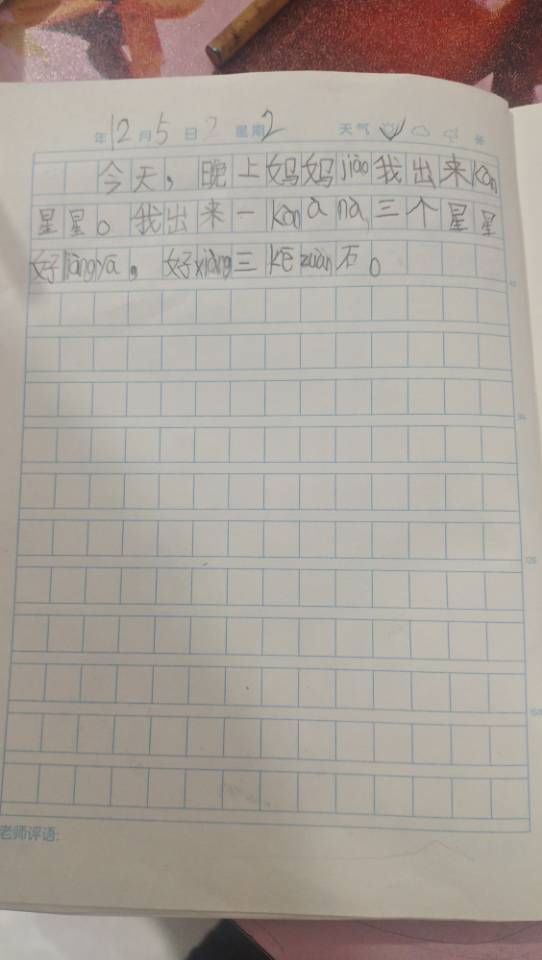 年12月5日 星期2 天气
今天，晚上妈妈jiào我出来kàn
星星。我出来一kàn à nà三个星星
好liàng yā，好xiàng三kē zuàn石。
老师评语: